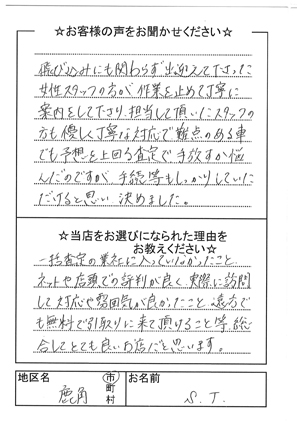 ☆お客様の声をお聞かせください☆
飛び込みにも関わらず出迎えて下さった
女性スタッフの方が作業を止めて丁寧に
案内をして下さり、担当して頂いたスタッフの
方も優しく丁寧な対応で難点のある車
でも予想を上回る査定で手放すか悩
んだのですが、手続等もしっかりしていた
だけると思い決めました。
☆当店をお選びになられた理由を
お教えください☆
一括査定の業社に入っていなかったこと、
ネットや店頭での評判が良く、実際に訪問
して対応や雰囲気が良かったこと、遠方で
も無料で引取りに来て頂けること等、総
合してとても良いお店だと思います。
地区名
鹿角
市
町
村
お名前
S.T.